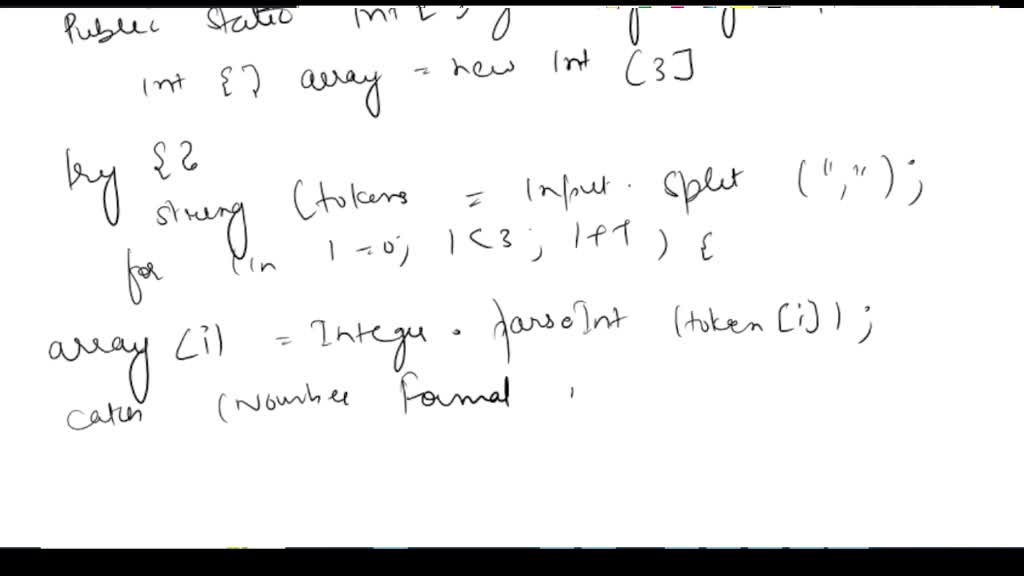 Public static int [
int {} array = new int (3]
try {{
string (tokens = Input. split (",");
for (in i=0; i<3; i++) {
array (i) = Integer . parseInt (token [i]);
catch (Number Format